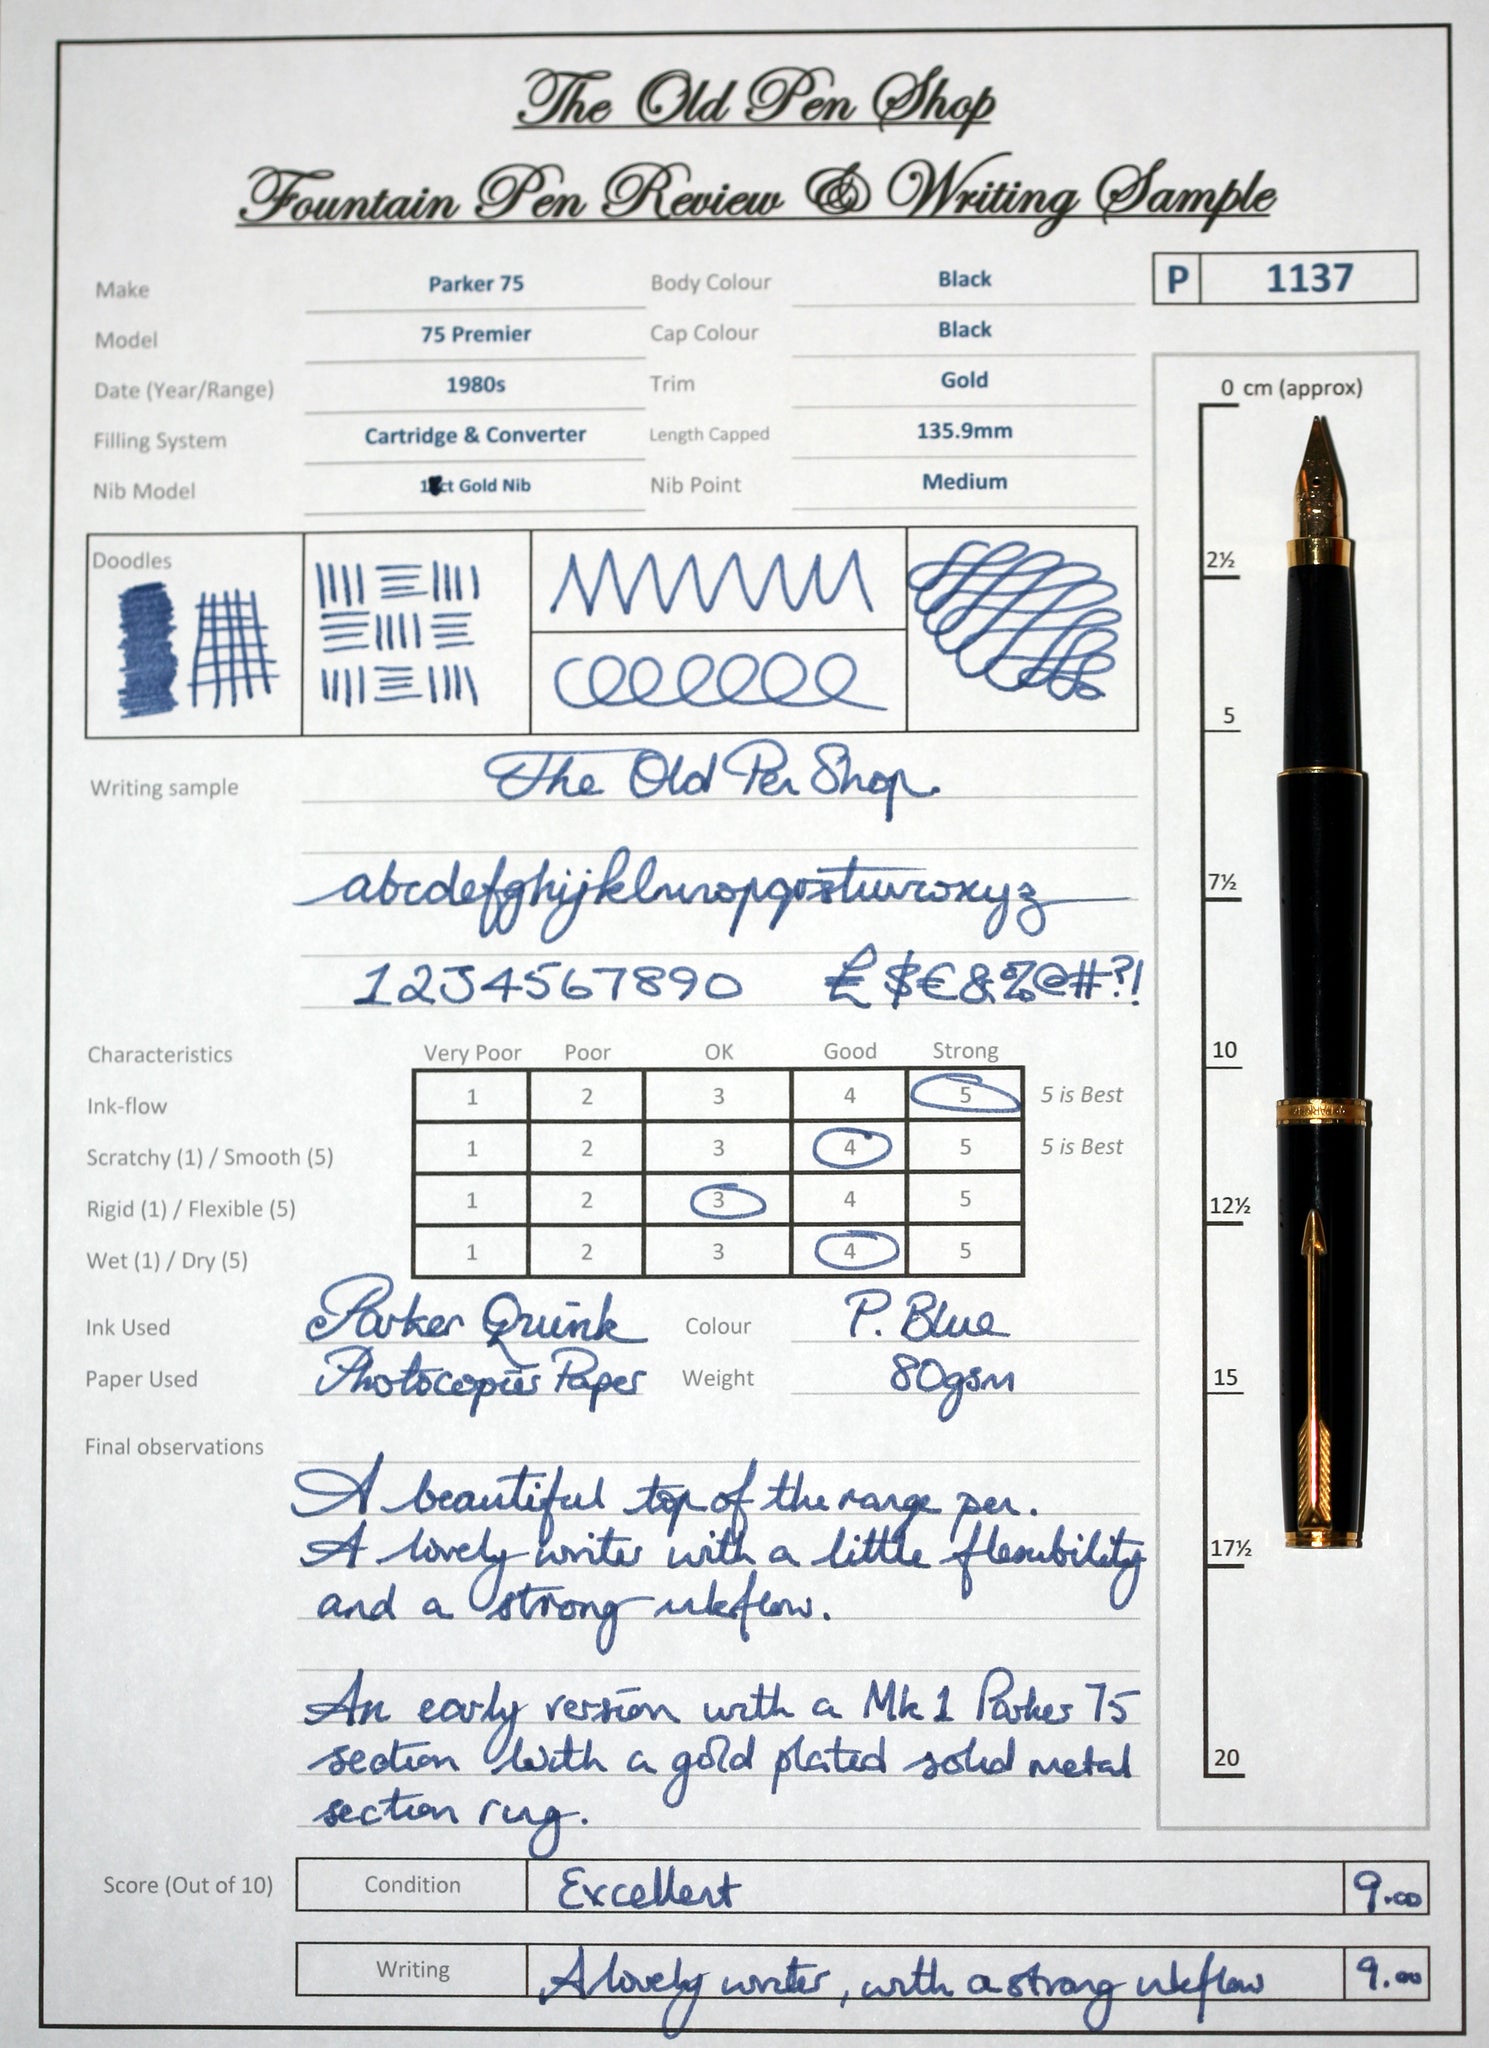 The Old Pen Shop
Fountain Pen Review & Writing Sample
Make Parker 75 Body Colour Black P 1137
Model 75 Premier Cap Colour Black
Date (Year/Range) 1980s Trim Gold
Filling System Cartridge & Converter Length Capped 135.9mm
Nib Model ct Gold Nib Nib Point Medium
Doodles
Writing sample The Old Pen Shop.
abcdefghijklmnopqrstuvwxyz
1234567890 £$€&%@#?!
Characteristics Very Poor Poor OK Good Strong
Ink-flow 1 2 3 4 5 5 is Best
Scratchy (1) / Smooth (5) 1 2 3 4 5 5 is Best
Rigid (1) / Flexible (5) 1 2 3 4 5
Wet (1) / Dry (5) 1 2 3 4 5
Ink Used Parker Quink Colour P. Blue
Paper Used Photocopier Paper Weight 80gsm
Final observations
A beautiful top of the range pen.
A lovely writer with a little flexibility
and a strong inkflow.
An early version with a Mk 1 Parker 75
section with a gold plated solid metal
section ring.
Score (Out of 10) Condition Excellent 9.00
Writing A lovely writer, with a strong inkflow 9.00
0 cm (approx)
2½
5
7½
10
12½
15
17½
20